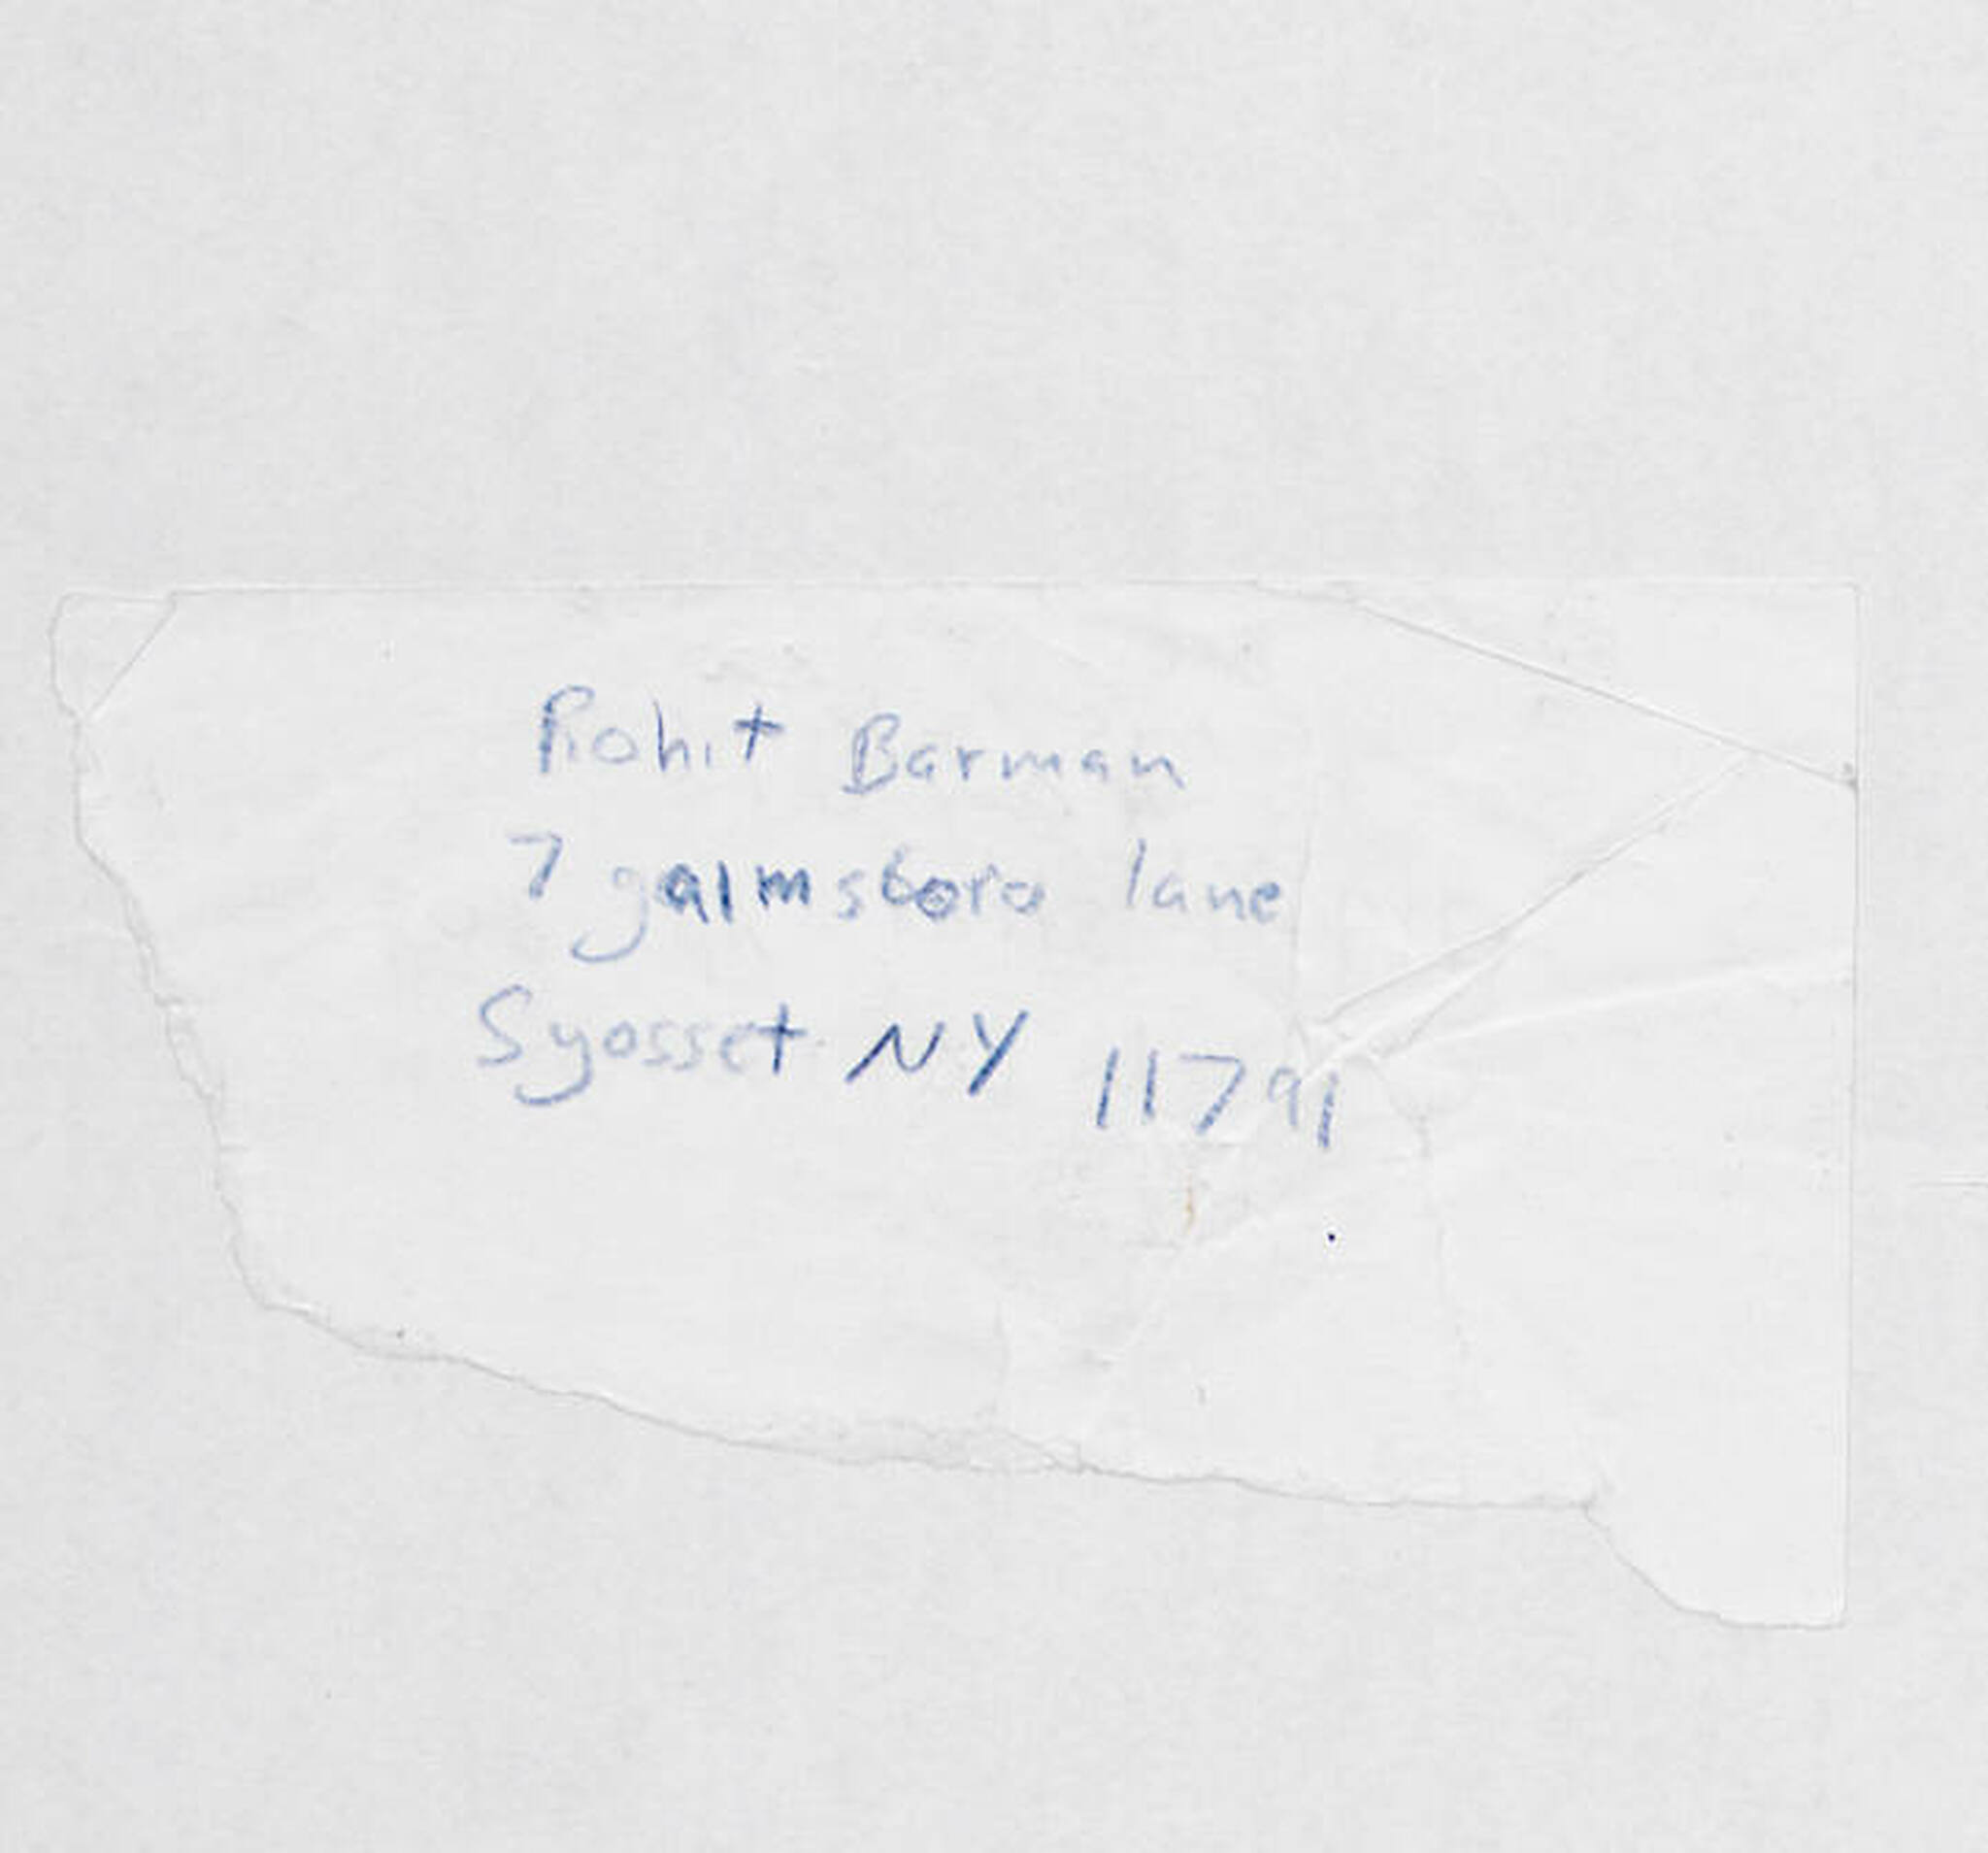 Rohit Barman
7 galmsboro lane
Syosset NY 11791